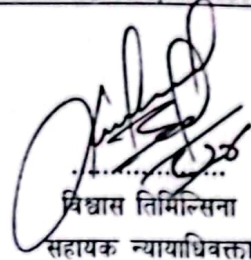 विश्वास तिमिल्सिना
सहायक न्यायाधिवक्ता